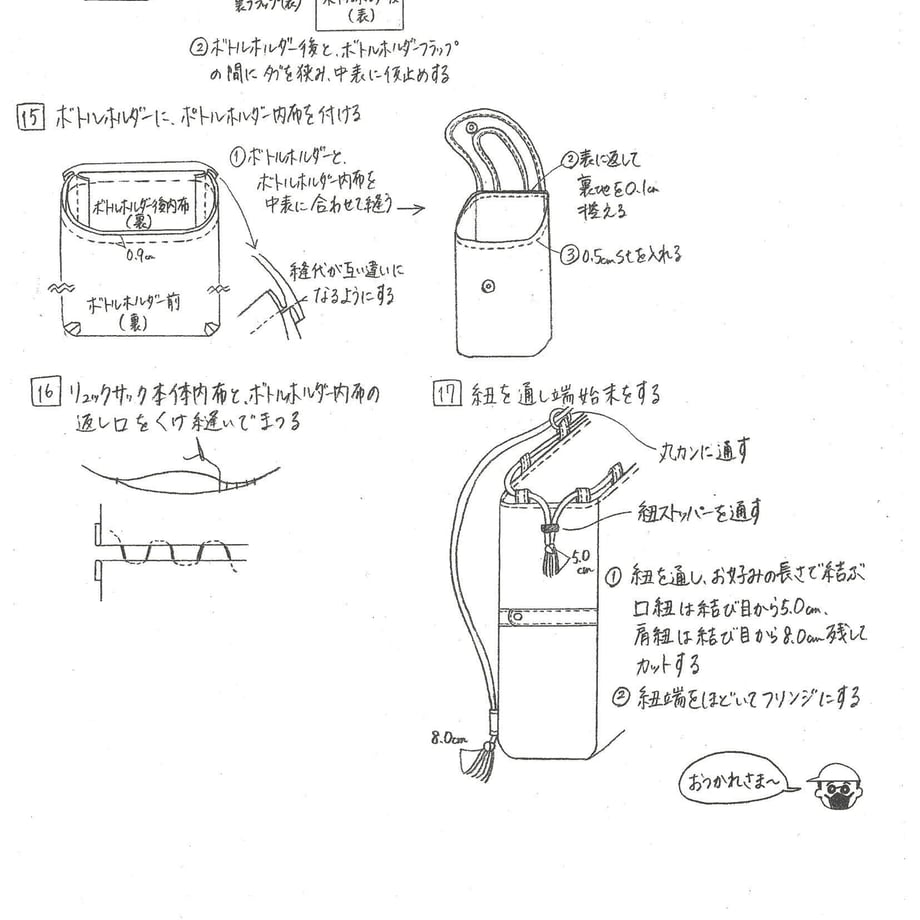 (表)
(表)
②ボトルホルダー後と、ボトルホルダーフラップ
の間にタブを挟み、中表に仮止めする
15 ボトルホルダーに、ボトルホルダー内布を付ける
①ボトルホルダーと、
ボトルホルダー内布を
中表に合わせて縫う
ボトルホルダー後内布
(裏)
0.9cm
縫代が互い違いに
なるようにする
ボトルホルダー前
(裏)
②表に返して
裏地を0.1cm
控える
③0.5cmstを入れる
16 リュックサック本体内布と、ボトルホルダー内布の
返し口をくけ縫いでまつる
17 紐を通し端始末をする
丸カンに通す
紐ストッパーを通す
5.0
cm
①紐を通し、お好みの長さで結ぶ
口紐は結び目から5.0cm、
肩紐は結び目から8.0cm残して
カットする
②紐端をほどいてフリンジにする
8.0cm
おつかれさま〜